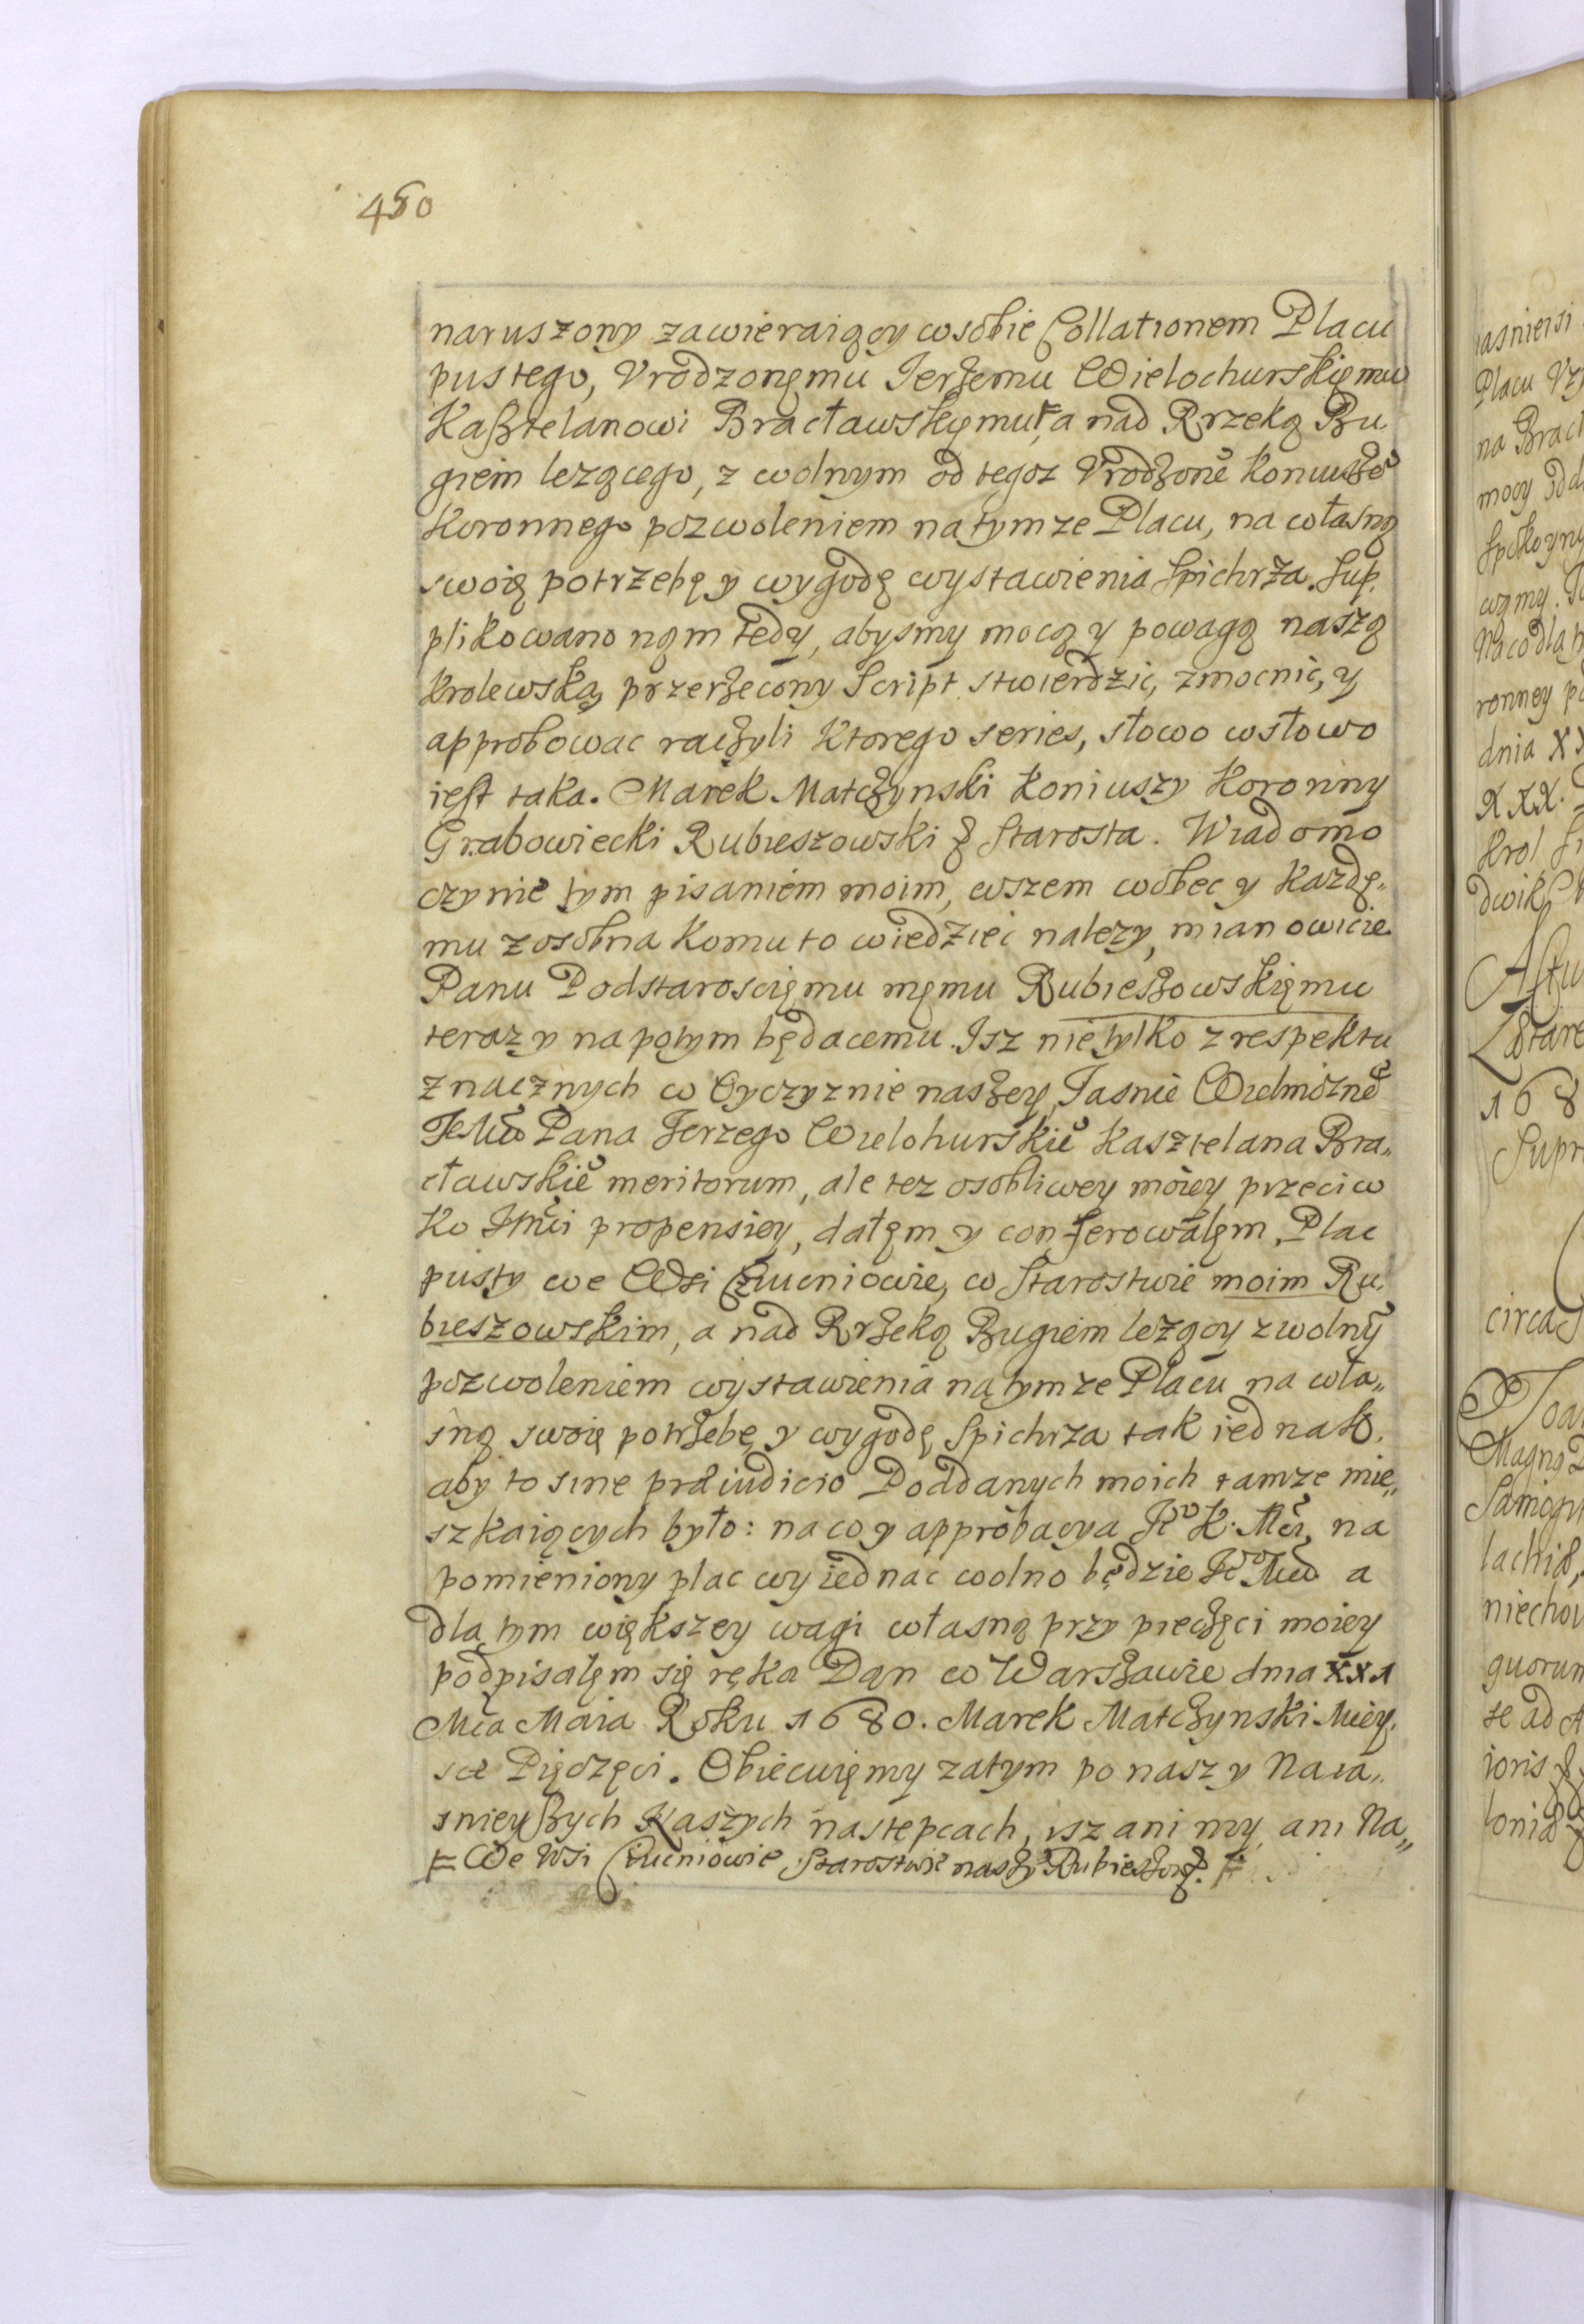 450
naruszony zawieraiący w sobie Collationem Placu
pustego, Vrodzonęmu Jerzemu Wielochurskięmu
Kasztelanowi Bracławskięmu, a nad Rrzeką Bu,
giem lezącego, z wolnym od tegoz Vrodzone̊ Koniusze̊
Koronnego pozwoleniem na tymze Placu, na własną
swoię potrzebę y wygodę wystawienia Spichrza. Sup,
plikowano nąm tedy, abysmy mocą y powagą naszą
Krolewską, przerzeczony Script stwierdzić, zmocnić, y
approbowac raczyli Ktorego series, słowo w słowo
iest taka. Marek Matczynski Koniuszy Koronny
Grabowiecki Rubieszowski & Starosta. Wiadomo
czynię tym pisaniem moim, wszem wobec y Kazdę„
mu zosobna Komu to wiedziec nalezy, mianowicie
Panu Podstaroscięmu męmu Rubieszowskięmu
teraz y napotym będacemu. Isz nie tylko z respektu
znacznych w Oyczyznie naszey, Jasnie Wielmozne̊
JeMci Pana Jerzego Wielohurskie̊ Kasztelana Bra„
cławskie̊ meritorum, ale tez osobliwey moiey przeciw
Ko JMci propensiey, dałęm y conferowałęm, Plac
pusty we Wsi Czucniowie, w Starostwie moim Ru,
bieszowskim, a nad Rrzeką Bugiem lezący z wolnÿ
pozwoleniem wystawienia na tymze Placu na wła„
sną swoię potrzebę y wygodę Spichrza tak iednak,
aby to sine præiudicio Poddanych moich tamze mie„
szkaiących było: na co y approbacya Jo K: Mci, na
pomieniony plac wyiednać wolno będzie Jo Mci a
dla tym większey wagi własną przy pieczęci moiey
podpisałęm się ręka Dąn w Warszawie dnia XX1
Mca Maia Roku 1680. Marek Matczynski Miey,
sce Pięczęci. Obiecuięmy zatym po nas y Naia„
snieyszych Naszych nastepcach, isz ani my, ani Na„
We Wsi Czucniowie, Starostwie naszÿ Rubieszow: